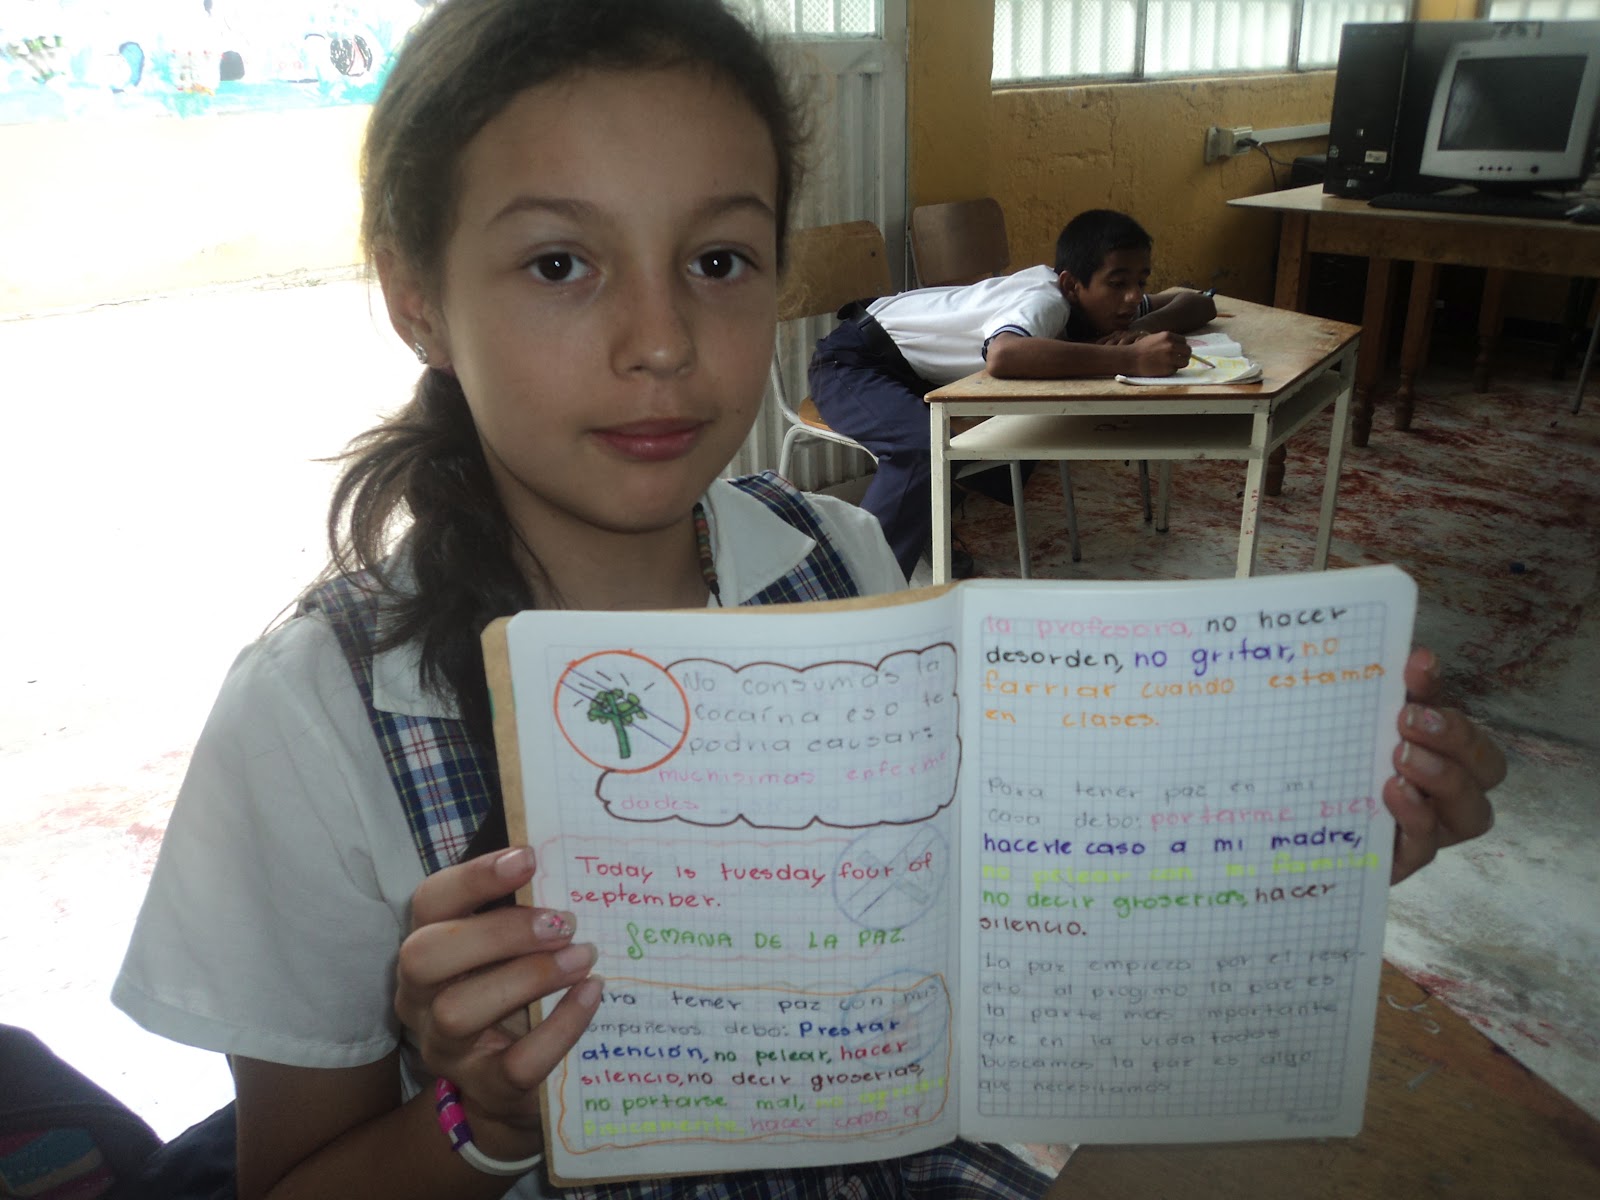 No consumas la
cocaína eso te
podria causar:
muchisimas enferme
dades
Today is tuesday four of
september.
SEMANA DE LA PAZ.
tener paz con mis
debo: Prestar
atención, no pelear, hacer
silencio, no decir groserias,
no portarse mal, no
fisicamente, hacer caso a
la profesora, no hacer
desorden, no gritar, no
farriar cuando estamos
en clases.
Para tener paz en mi
casa debo: portarme bien,
hacerle caso a mi madre,
no pelear con mi familia
no decir groserias, hacer
silencio.
La paz empieza por el resp-
eto al progimo la paz es
la parte mas importante
que en la vida todos
buscamos la paz es algo
que necesitamos